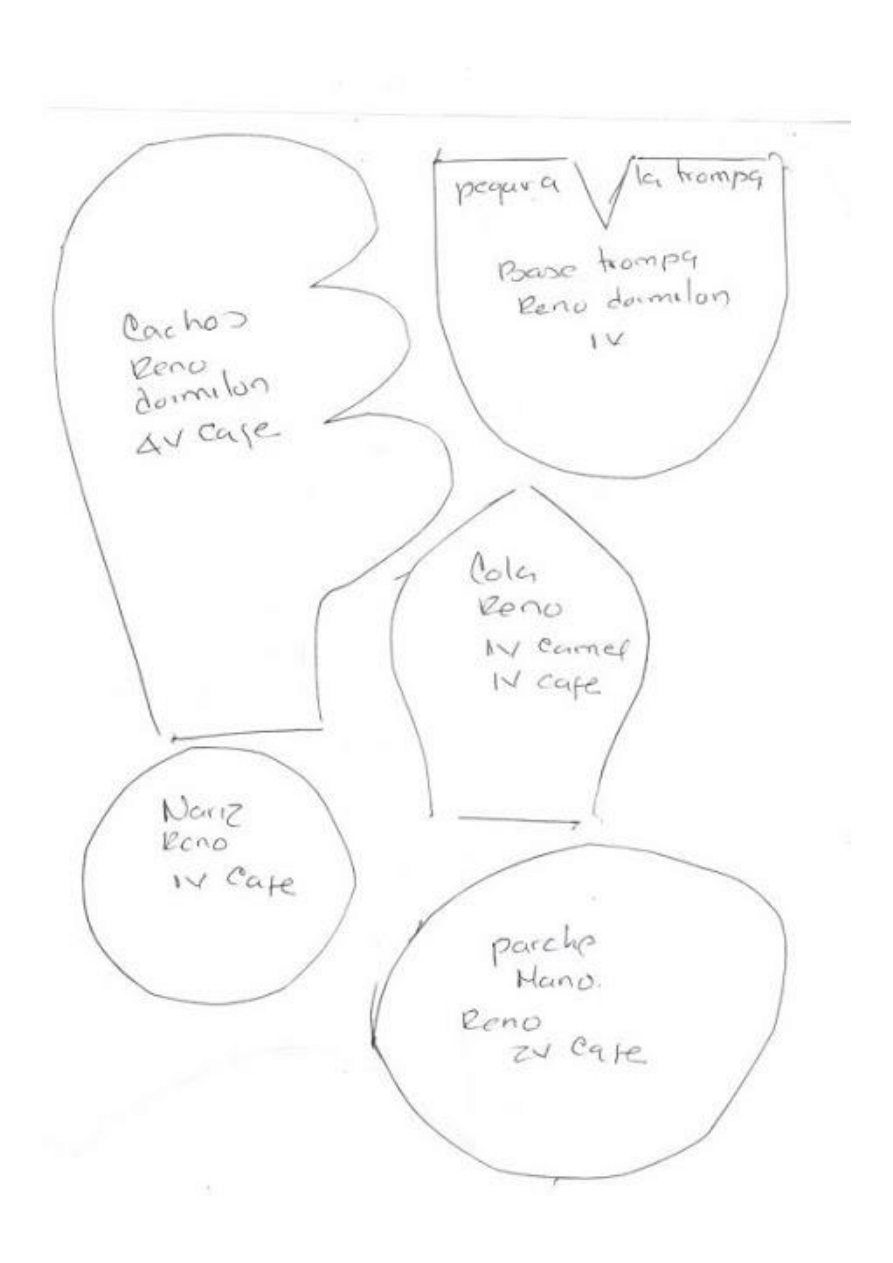 Cachos
Reno
dormilon
4V Cafe
pegar a la trompa
Base trompa
Reno dormilon
1V
Cola
Reno
1V Carmel
1V cafe
Nariz
Reno
1V Cafe
parche
Mano.
Reno
2V Cafe